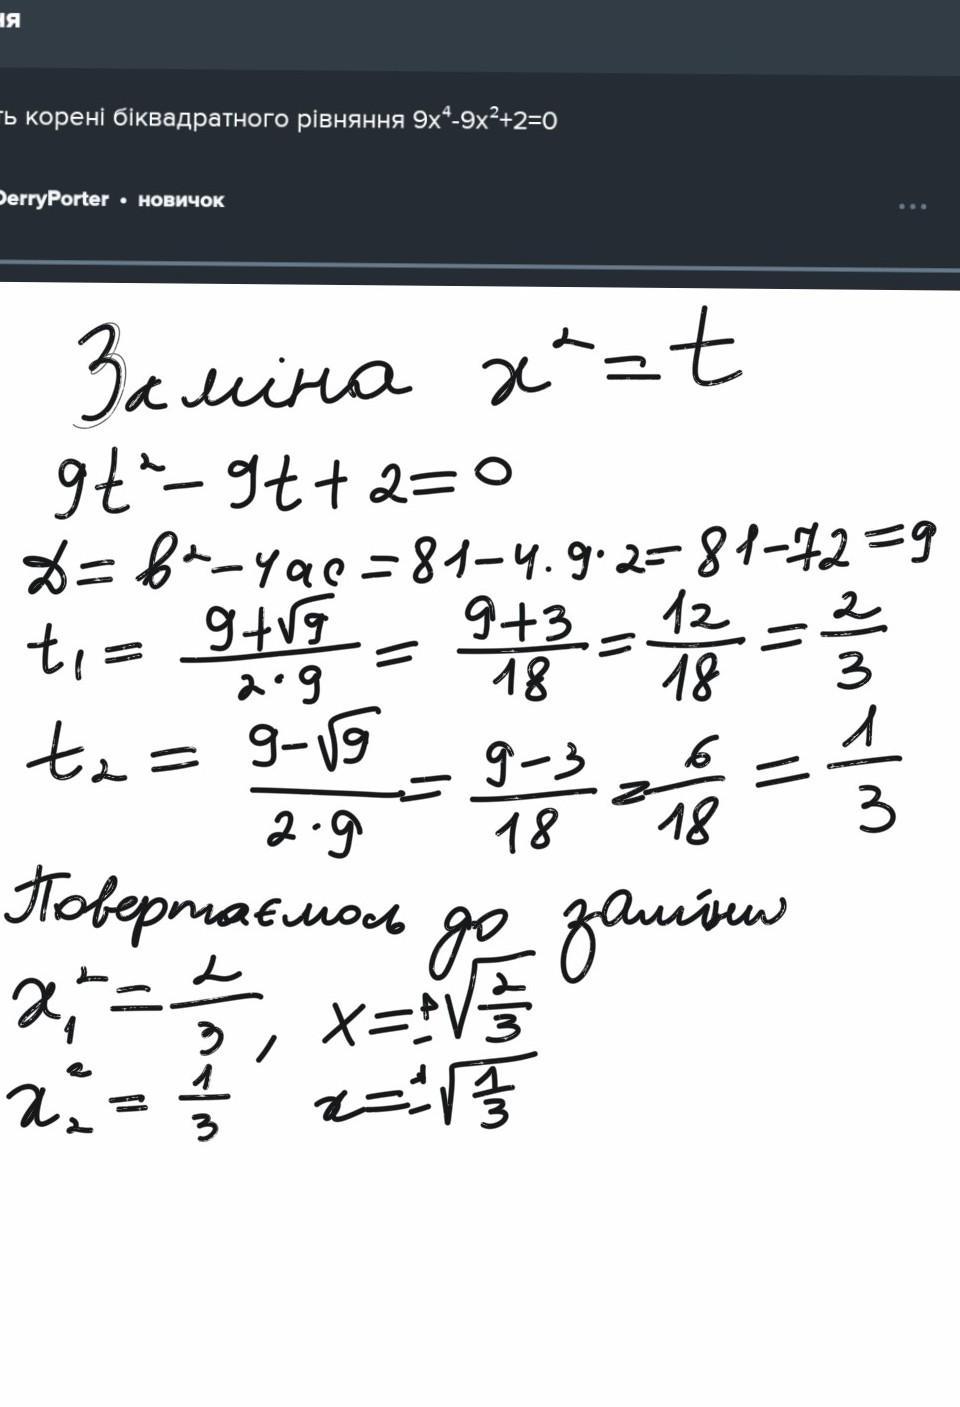 ня
ть корені біквадратного рівняння 9x⁴-9x²+2=0
DerryPorter • новичок
Заміна x² = t
9t² - 9t + 2 = 0
D = b² - 4ac = 81 - 4 · 9 · 2 = 81 - 72 = 9
t₁ = (9+√9)/(2·9) = (9+3)/18 = 12/18 = 2/3
t₂ = (9-√9)/(2·9) = (9-3)/18 = 6/18 = 1/3
Повертаємось до заміни
x₁² = 2/3, x = ±√(2/3)
x₂² = 1/3 x = ±√(1/3)